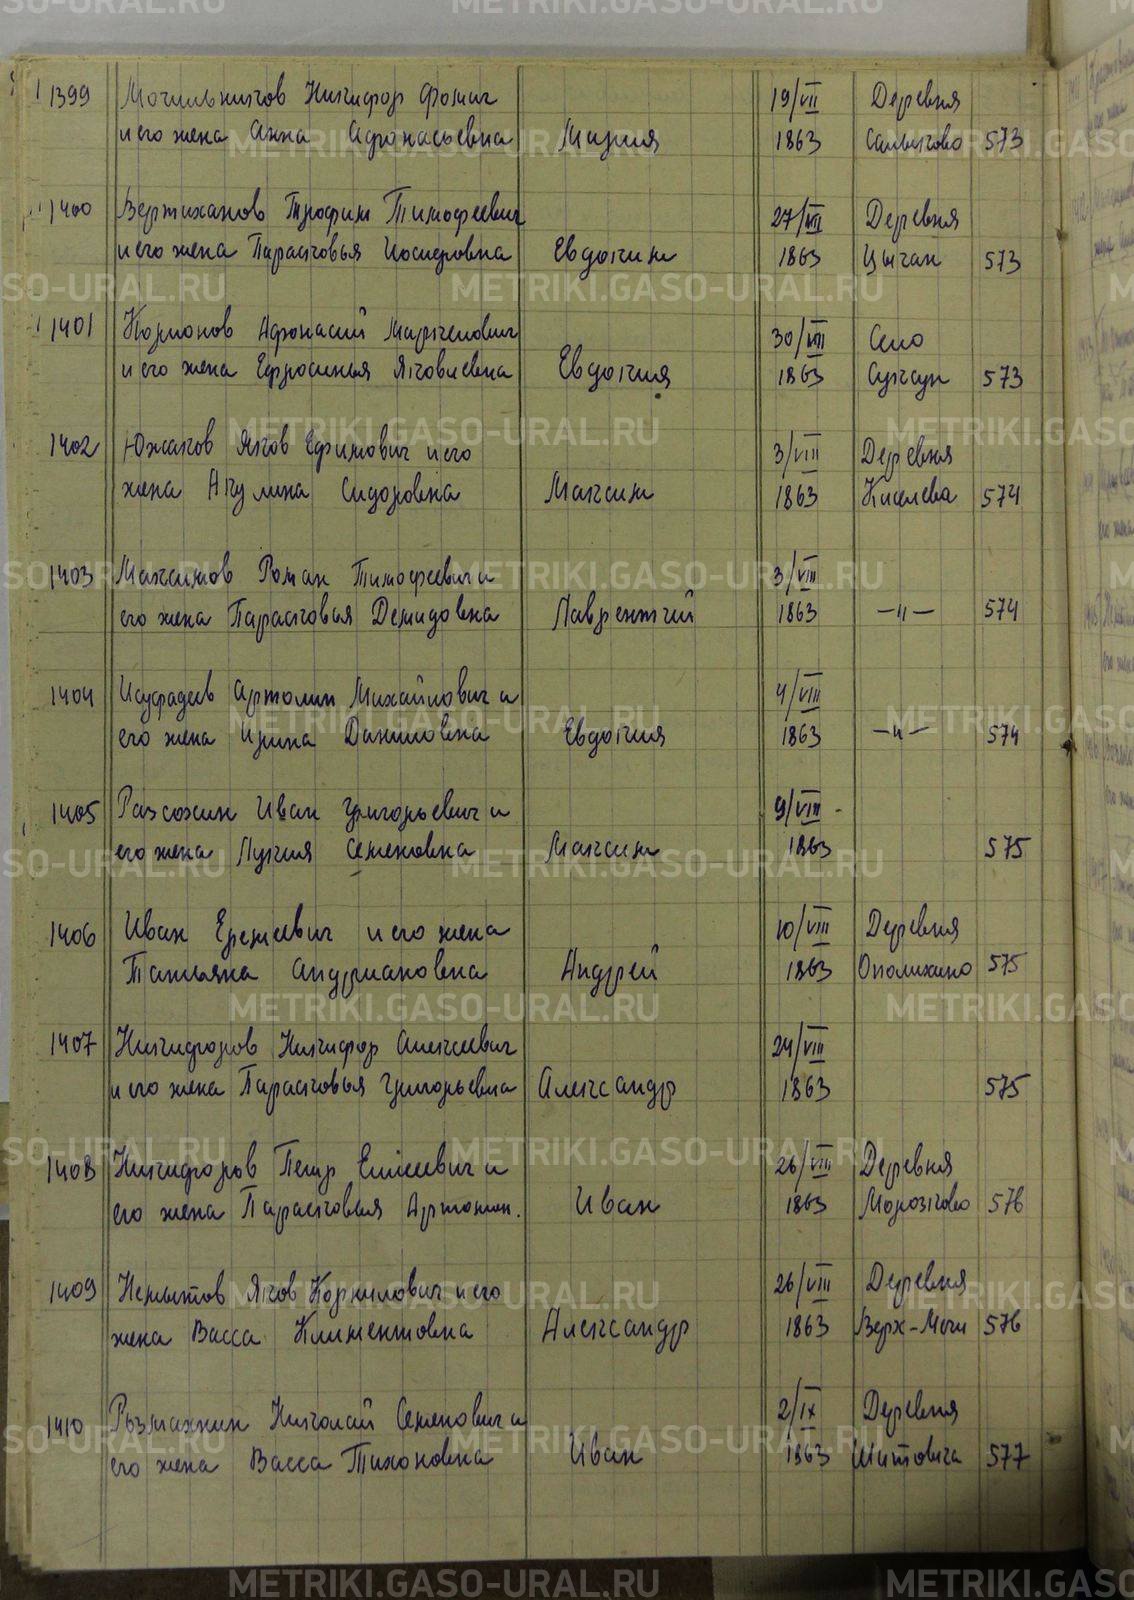 1399 Могильников Никифор Фомич 19/VII Деревня
и его жена Анна Афонасьевна Мария 1863 573
1400 Вертиханов Трофим Тимофеевич 27/VII Деревня
и его жена Парасковья Иосиповна Евдоким 1863 Цыган 573
1401 Афонасий 30/VII Село
и его жена Ефросинья Яковлевна Евдокия 1863 Суксун 573
1402 Южаков Яков Ефимович и его 3/VIII Деревня
жена Акулина Сидоровна Максим 1863 Киселева 574
1403 Максимов Роман Тимофеевич и 3/VIII
его жена Парасковья Демидовна Лаврентий 1863 –„– 574
1404 Михайлович и 4/VIII
его жена Ирина Даниловна Евдокия 1863 –„– 574
1405 Разсохин Иван Григорьевич и 9/VIII
его жена Лукия Семеновна Максим 1863 575
1406 Иван Еремеевич и его жена 10/VIII Деревня
Татьяна Андриановна Андрей 1863 Опалихино 575
1407 Никифоров Никифор Алексеевич 24/VIII
и его жена Парасковья Григорьевна Александр 1863 575
1408 Никифоров Петр Елисеевич и 26/VIII Деревня
его жена Парасковья Артомон. Иван 1863 Морозково 576
1409 Яков Корнилович и его 26/VIII Деревня
жена Васса Климентовна Александр 1863 576
1410 Николай Семенович и 2/IX Деревня
его жена Васса Тихоновна Иван 1863 577
METRIKI.GASO-URAL.RU